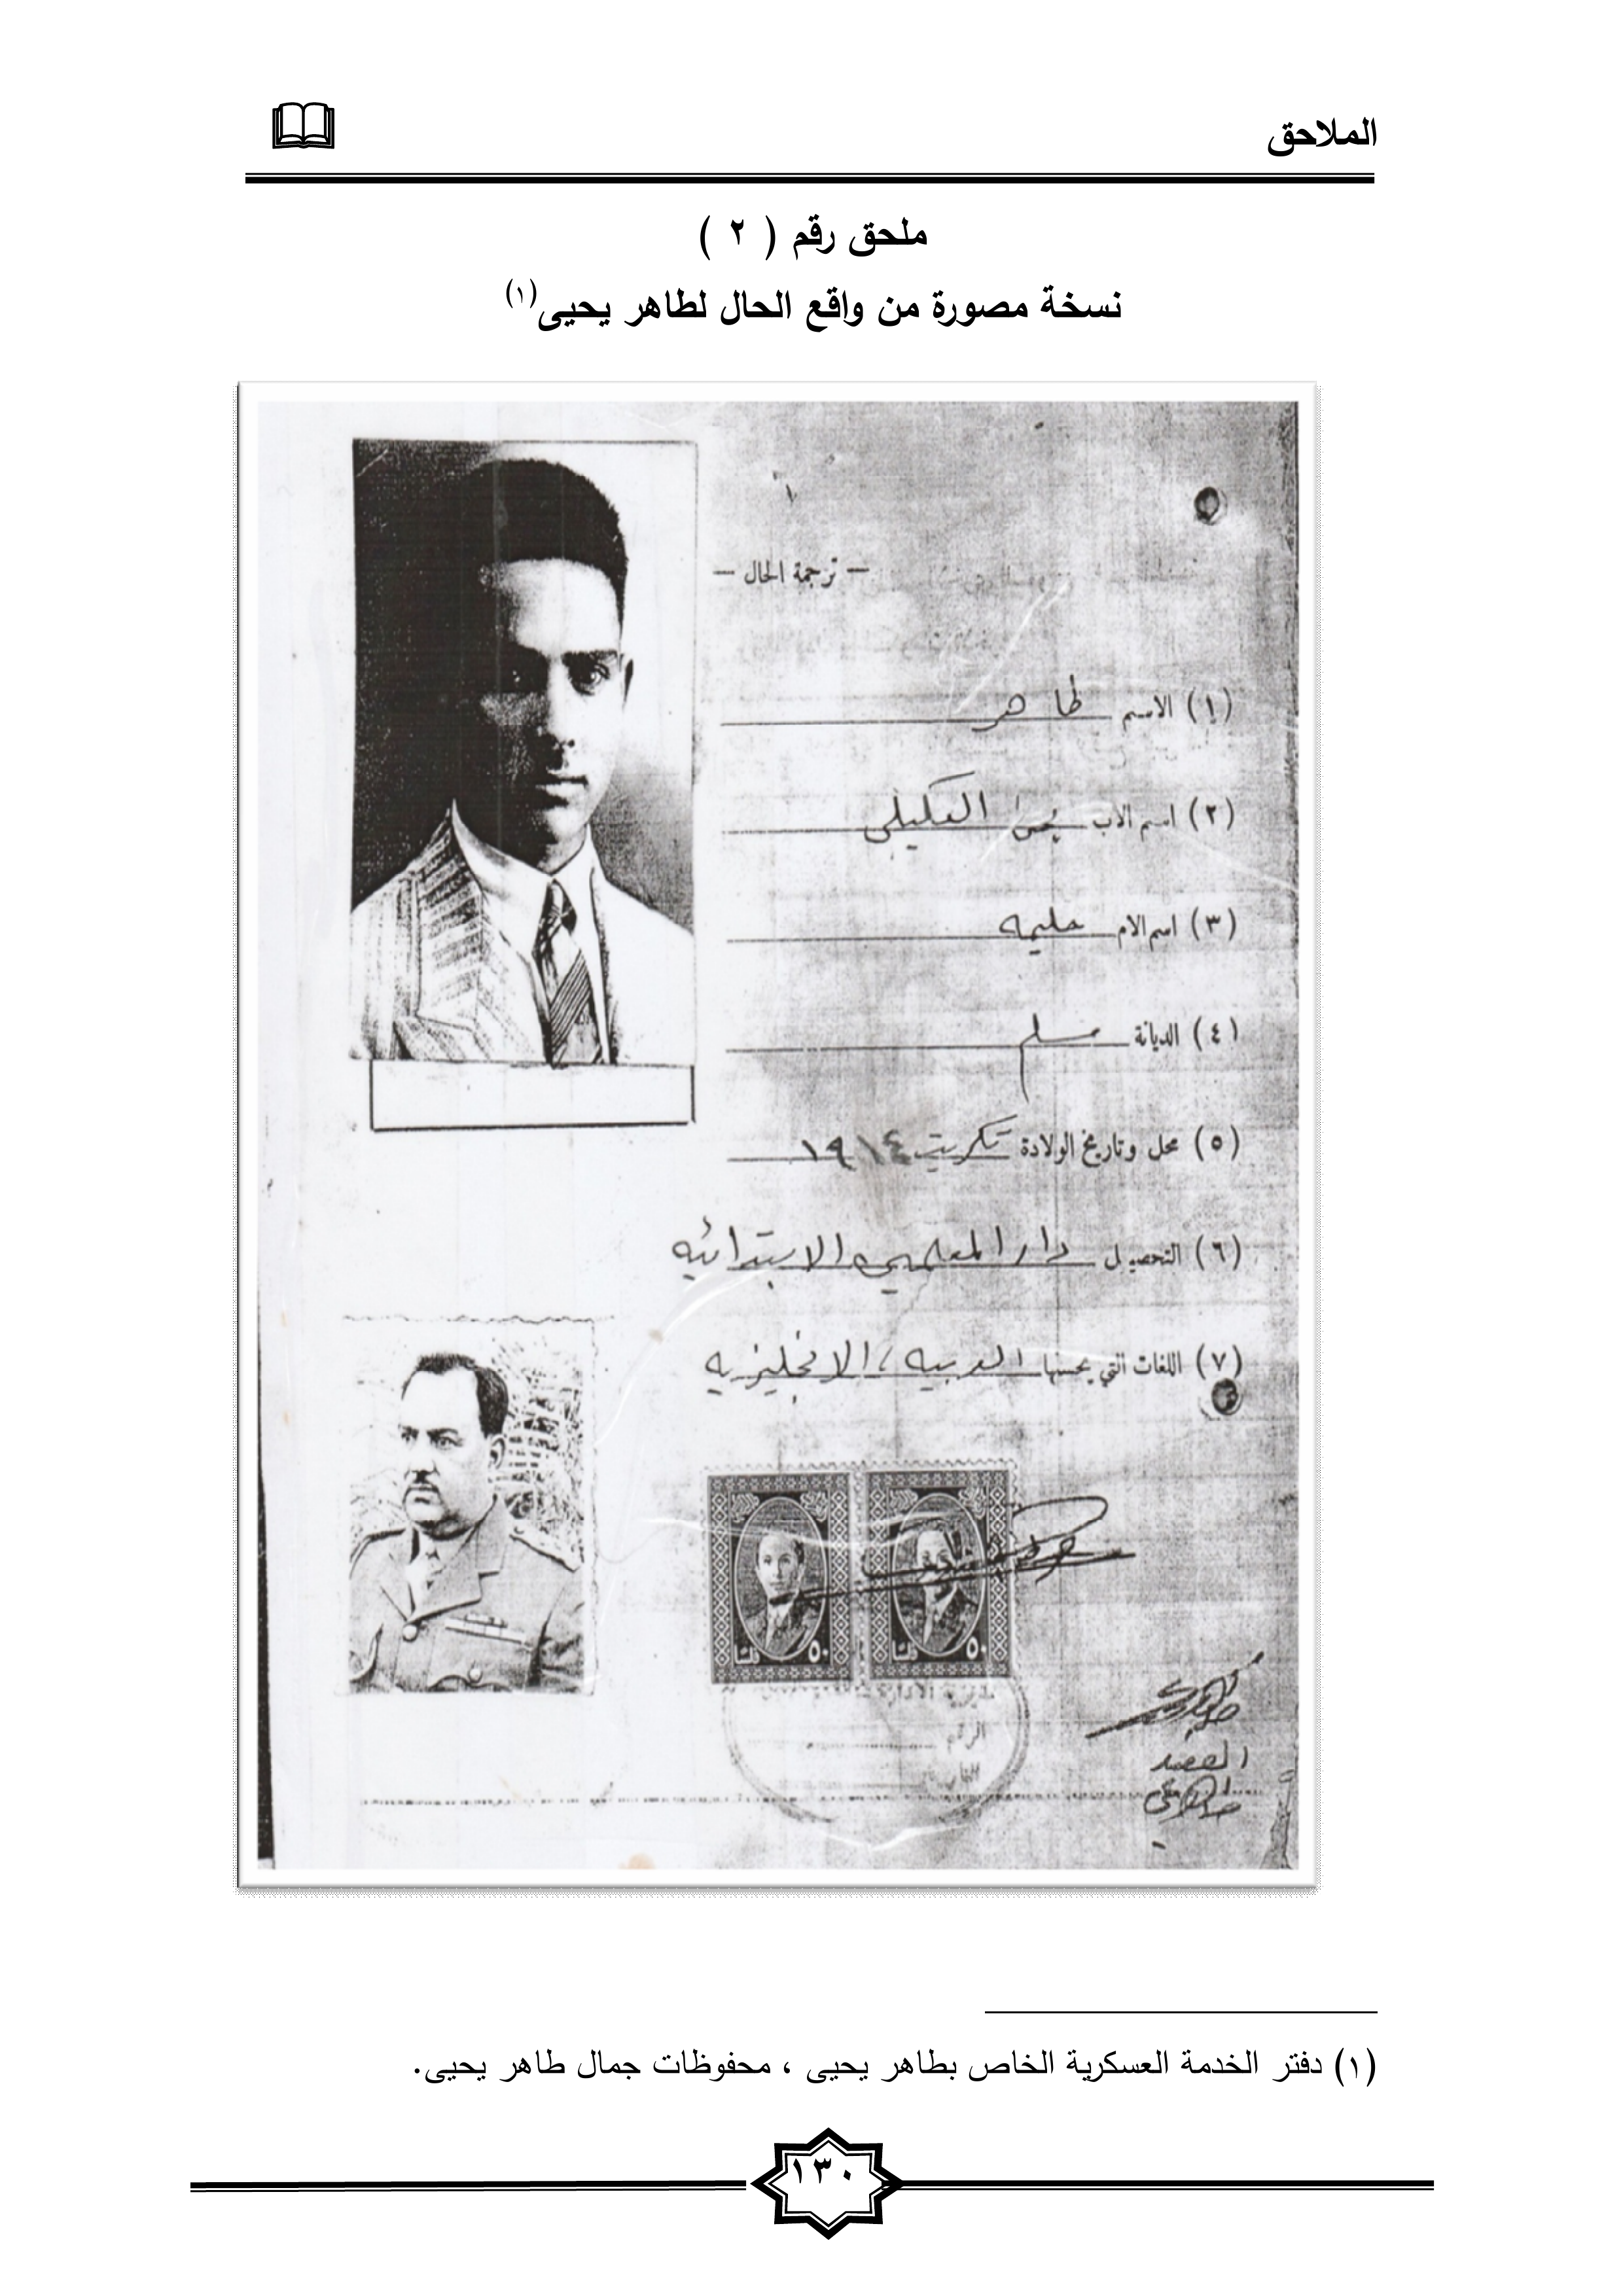 الملاحق
ملحق رقم ( ٢ )
نسخة مصورة من واقع الحال لطاهر يحيى(١)
— ترجمة الحال —
(١) الاسم طاهر
(٢) اسم الاب يحيى العكيلي
(٣) اسم الام حليمه
(٤) الديانة مسلم
(٥) محل وتاريخ الولادة تكريت ١٩١٤
(٦) التحصيل دار المعلمين الابتدائيه
(٧) اللغات التي يحسنها العربيه ، الانجليزيه
٥٠ فلسا
٥٠ فلسا
مديرية الادارة
الرقم
(١) دفتر الخدمة العسكرية الخاص بطاهر يحيى ، محفوظات جمال طاهر يحيى.
١٣٠